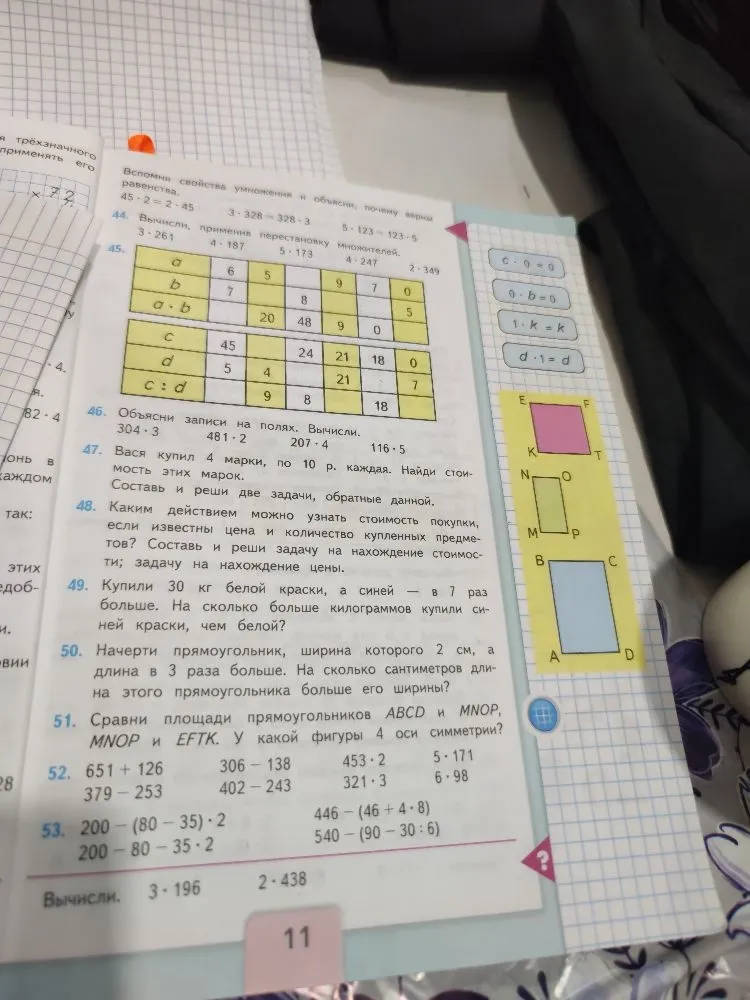 я трёхзначного
применять его
× 72
· 4.
я.
82 · 4
каждом
так:
этих
и.
28
Вспомни свойства умножения и объясни, почему верны
равенства.
45 · 2 = 2 · 45   3 · 328 = 328 · 3   5 · 123 = 123 · 5
44. Вычисли, применяя перестановку множителей.
3 · 261   4 · 187   5 · 173   4 · 247   2 · 349
45.
a 6 5 9 7 0
b 7 8 5
a · b 20 48 9 0
c 45 24 21 18 0
d 5 4 21 7
c : d 9 8 18
46. Объясни записи на полях. Вычисли.
304 · 3   481 · 2   207 · 4   116 · 5
47. Вася купил 4 марки, по 10 р. каждая. Найди стои-
мость этих марок.
Составь и реши две задачи, обратные данной.
48. Каким действием можно узнать стоимость покупки,
если известны цена и количество купленных предме-
тов? Составь и реши задачу на нахождение стоимос-
ти; задачу на нахождение цены.
49. Купили 30 кг белой краски, а синей — в 7 раз
больше. На сколько больше килограммов купили си-
ней краски, чем белой?
50. Начерти прямоугольник, ширина которого 2 см, а
длина в 3 раза больше. На сколько сантиметров дли-
на этого прямоугольника больше его ширины?
51. Сравни площади прямоугольников ABCD и MNOP,
MNOP и EFTK. У какой фигуры 4 оси симметрии?
52. 651 + 126   306 − 138   453 · 2   5 · 171
379 − 253   402 − 243   321 · 3   6 · 98
53. 200 − (80 − 35) · 2   446 − (46 + 4 · 8)
200 − 80 − 35 · 2   540 − (90 − 30 : 6)
Вычисли.   3 · 196   2 · 438
11
c · 0 = 0
0 · b = 0
1 · k = k
d · 1 = d
E F
K T
N O
M P
B C
A D
?